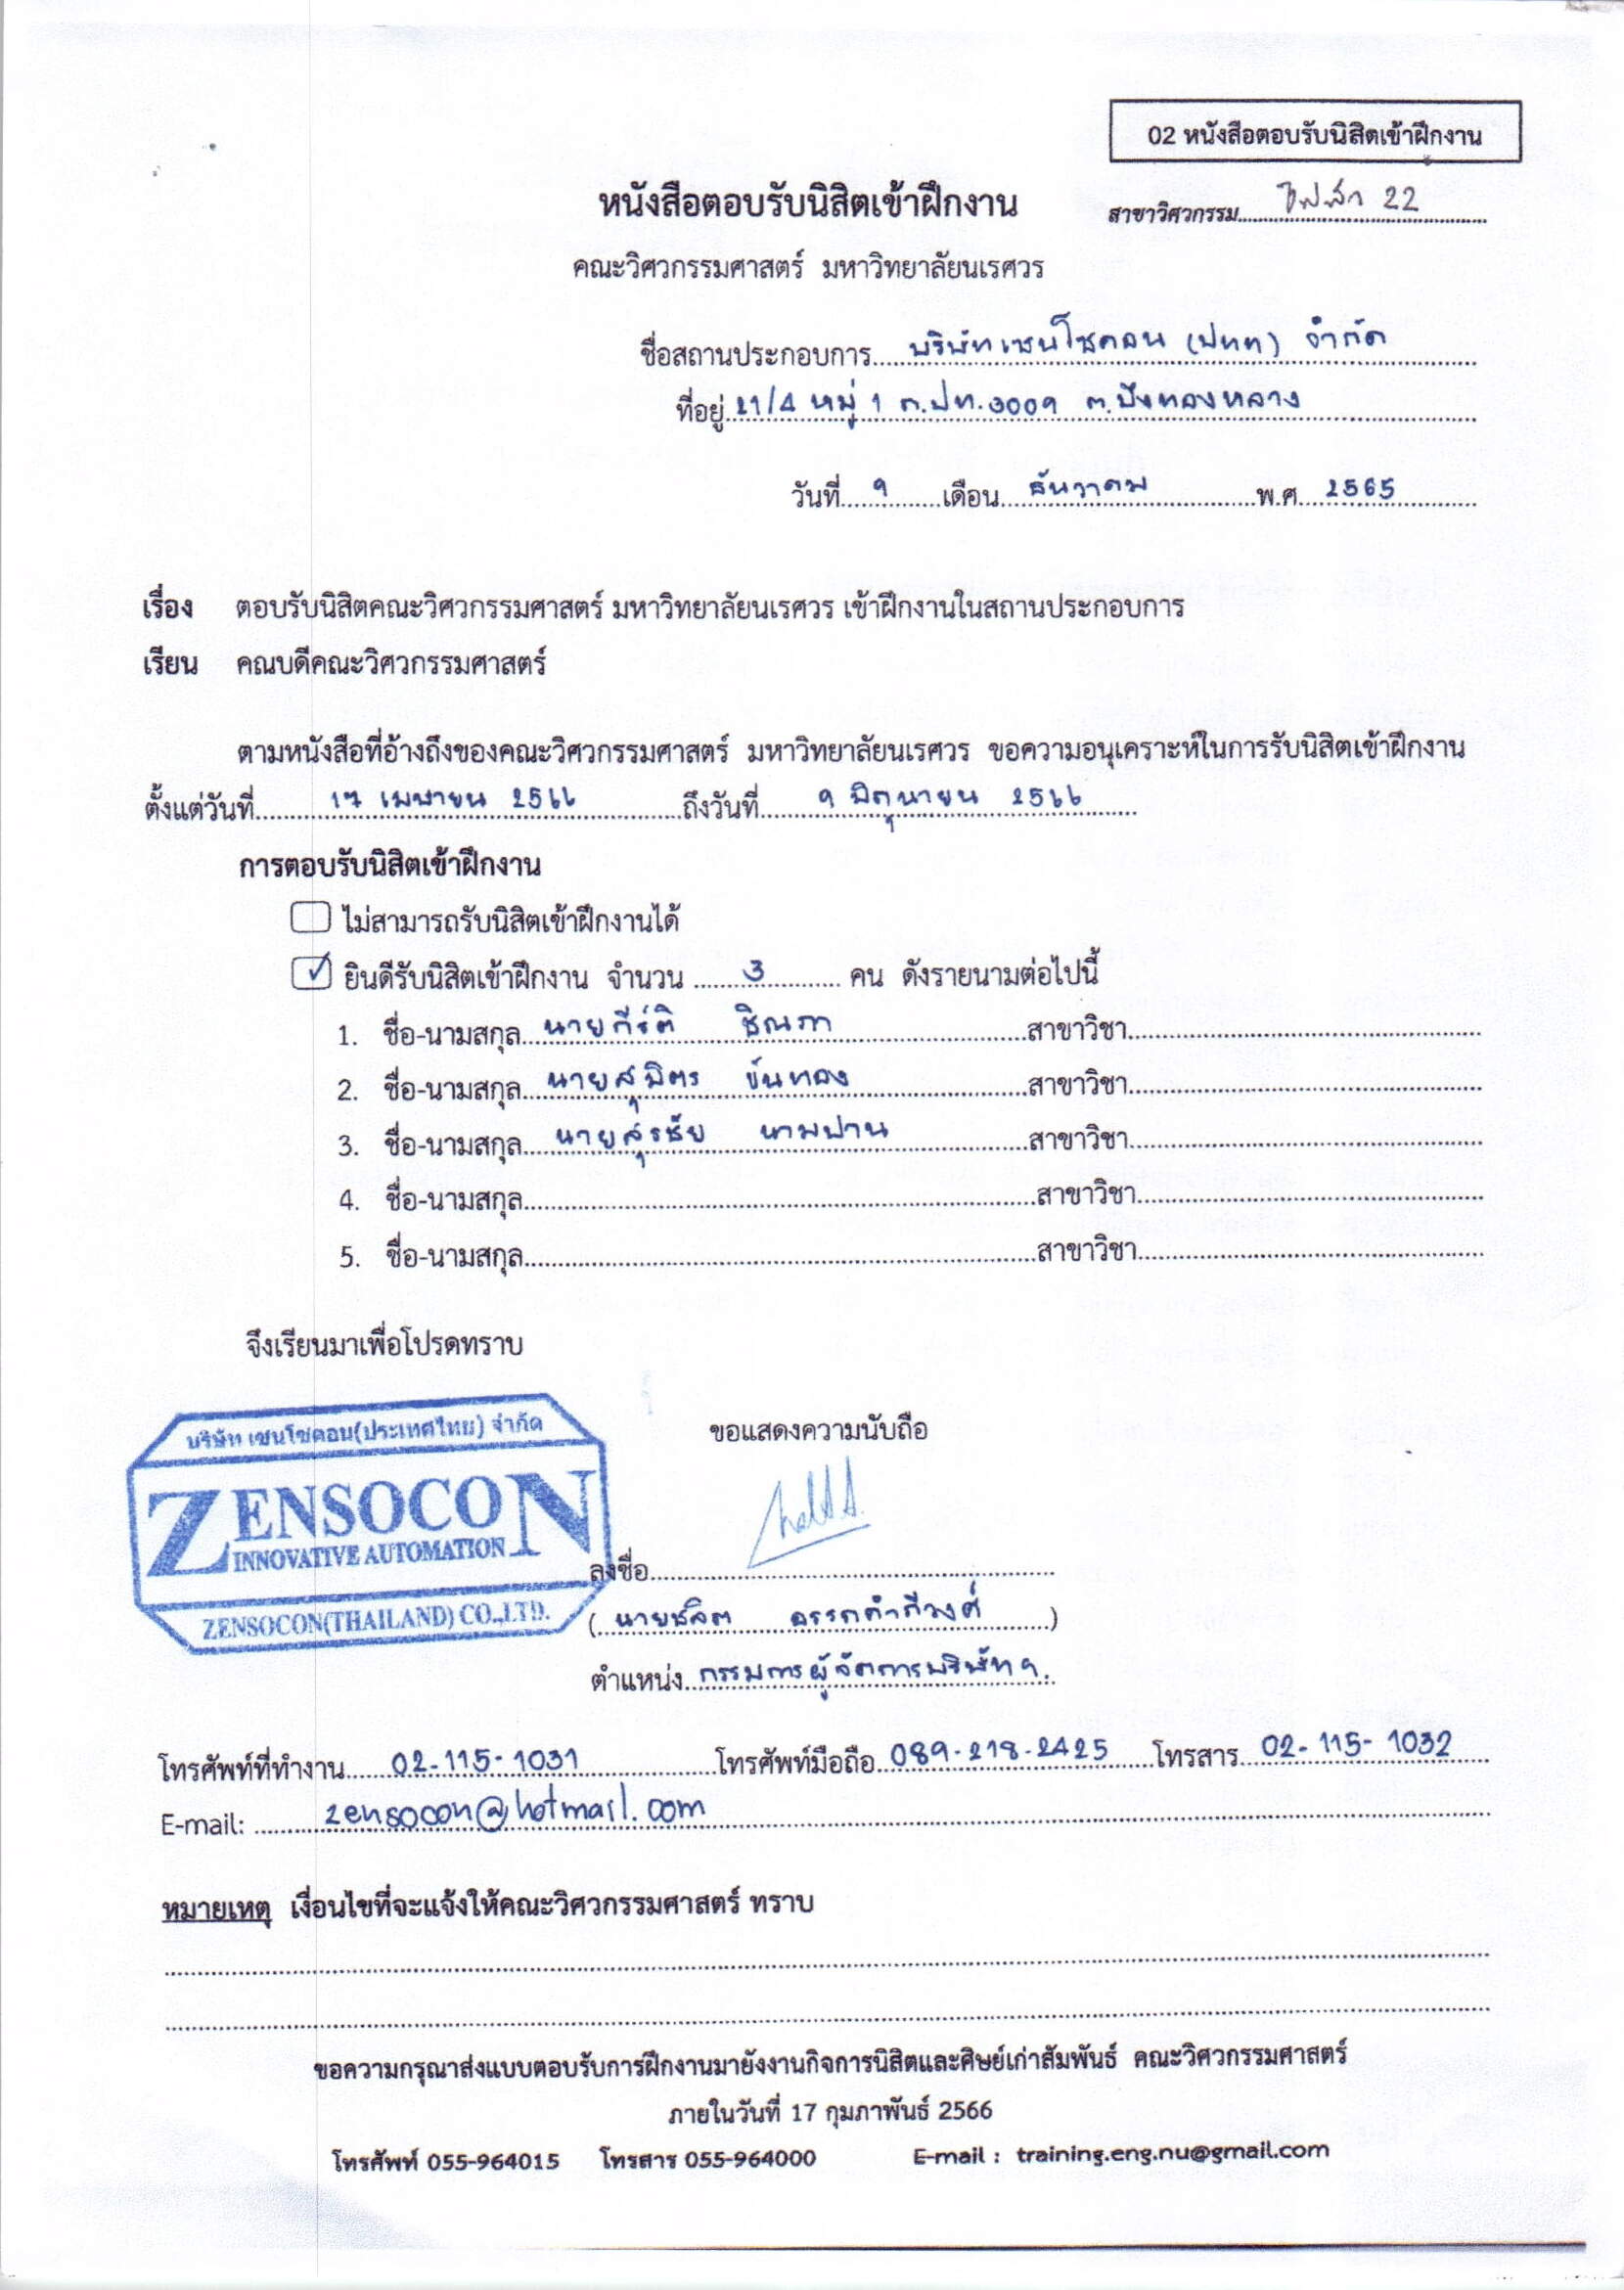 02 หนังสือตอบรับนิสิตเข้าฝึกงาน
หนังสือตอบรับนิสิตเข้าฝึกงาน
สาขาวิศวกรรม 22
คณะวิศวกรรมศาสตร์ มหาวิทยาลัยนเรศวร
ชื่อสถานประกอบการ บริษัทเซนโซคอน (ปทท) จำกัด
ที่อยู่ 21/4 หมู่ 1 ถ.ปท.3009 ต.บึงทองหลาง
วันที่ 9 เดือน ธันวาคม พ.ศ. 2565
เรื่อง ตอบรับนิสิตคณะวิศวกรรมศาสตร์ มหาวิทยาลัยนเรศวร เข้าฝึกงานในสถานประกอบการ
เรียน คณบดีคณะวิศวกรรมศาสตร์
ตามหนังสือที่อ้างถึงของคณะวิศวกรรมศาสตร์ มหาวิทยาลัยนเรศวร ขอความอนุเคราะห์ในการรับนิสิตเข้าฝึกงาน
ตั้งแต่วันที่ 17 เมษายน 2566 ถึงวันที่ 9 มิถุนายน 2566
การตอบรับนิสิตเข้าฝึกงาน
ไม่สามารถรับนิสิตเข้าฝึกงานได้
✓ ยินดีรับนิสิตเข้าฝึกงาน จำนวน 3 คน ดังรายนามต่อไปนี้
1. ชื่อ-นามสกุล นายกีร์ติ ชิณภา สาขาวิชา
2. ชื่อ-นามสกุล นายสุมิตร ขันทอง สาขาวิชา
3. ชื่อ-นามสกุล นายสุรชัย นามปาน สาขาวิชา
4. ชื่อ-นามสกุล สาขาวิชา
5. ชื่อ-นามสกุล สาขาวิชา
จึงเรียนมาเพื่อโปรดทราบ
บริษัท เซนโซคอน(ประเทศไทย) จำกัด
ZENSOCON
INNOVATIVE AUTOMATION
ZENSOCON(THAILAND) CO.,LTD.
ขอแสดงความนับถือ
ลงชื่อ
(นายชลิต อรรถคำภีวงศ์)
ตำแหน่ง กรรมการผู้จัดการบริษัทฯ.
โทรศัพท์ที่ทำงาน 02-115-1031 โทรศัพท์มือถือ 089-218-2425 โทรสาร 02-115-1032
E-mail: zensocon@hotmail.com
หมายเหตุ เงื่อนไขที่จะแจ้งให้คณะวิศวกรรมศาสตร์ ทราบ
ขอความกรุณาส่งแบบตอบรับการฝึกงานมายังงานกิจการนิสิตและศิษย์เก่าสัมพันธ์ คณะวิศวกรรมศาสตร์
ภายในวันที่ 17 กุมภาพันธ์ 2566
โทรศัพท์ 055-964015 โทรสาร 055-964000 E-mail : training.eng.nu@gmail.com